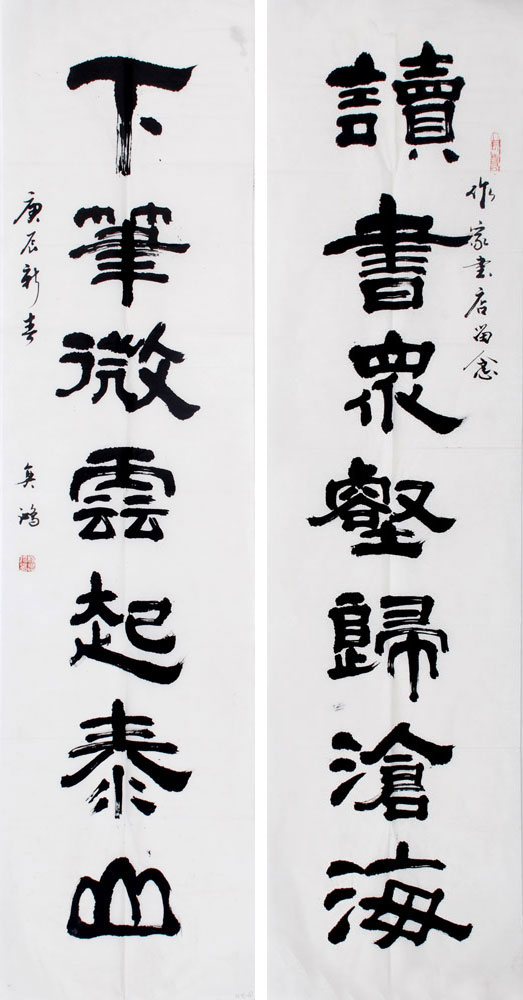 讀書衆壑歸滄海
作家書店留念
下筆微雲起泰山
庚辰新春
真鴻